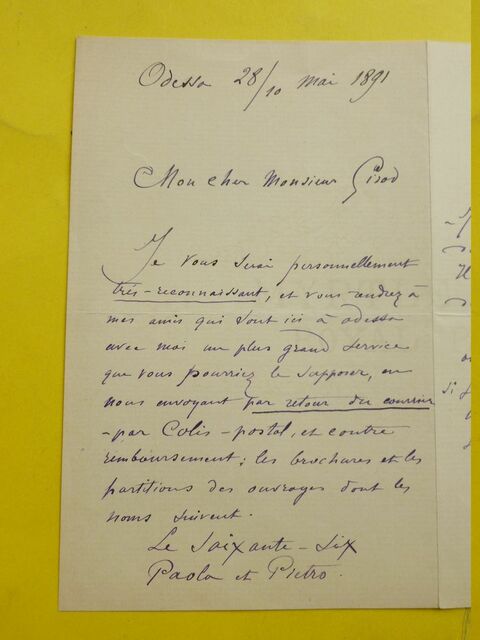 Odessa 28/10 mai 1891
Mon cher Monsieur Girod
Je vous serai personnellement
très-reconnaissant, et vous rendrez à
mes amis qui sont ici à Odessa
avec moi un plus grand service
que vous pourriez le supposer, en
nous envoyant par retour du courrier
-par Colis-postal, et contre
remboursement; les brochures et les
partitions des ouvrages dont les
noms suivent.
Le Soixante-Six
Paola et Pietro.